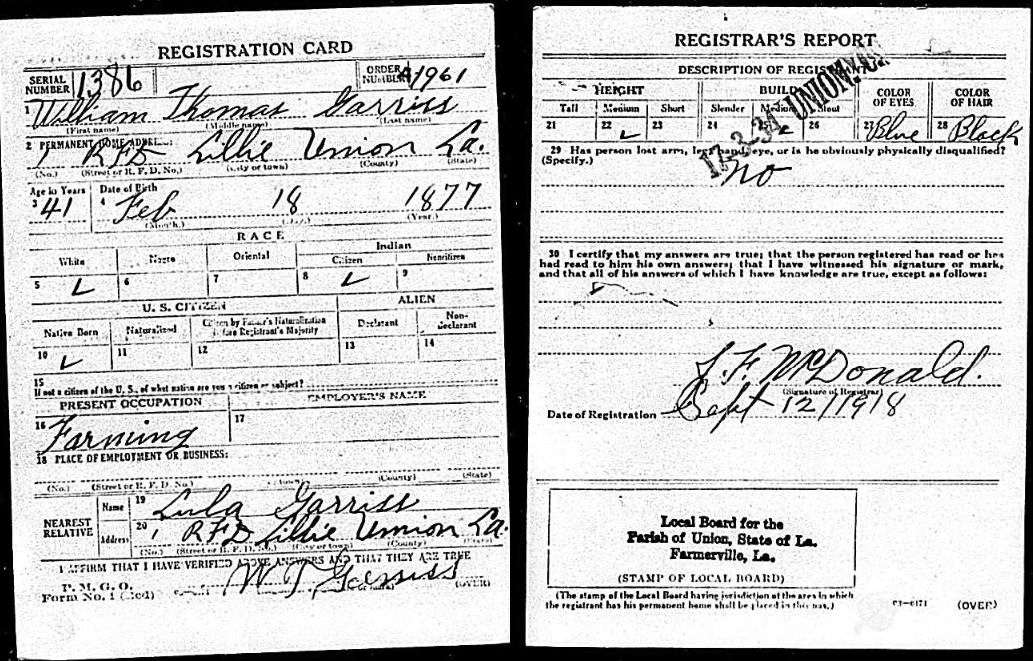 REGISTRATION CARD
SERIAL NUMBER 1386
ORDER NUMBER A1961
1 William Thomas Garriss
(First name) (Middle name) (Last name)
2 PERMANENT HOME ADDRESS:
1 RFD Lillie Union La.
(No.) (Street or R. F. D. No.) (City or town) (County) (State)
Age in Years Date of Birth
3 41 4 Feb 18 1877
(Month.) (Day.) (Year.)
RACE
White Negro Oriental Indian
Citizen Noncitizen
5 ✓ 6 7 8 ✓ 9
U. S. CITIZEN ALIEN
Native Born Naturalized Citizen by Father's Naturalization Before Registrant's Majority Declarant Non-declarant
10 ✓ 11 12 13 14
15
If not a citizen of the U. S., of what nation are you a citizen or subject?
PRESENT OCCUPATION EMPLOYER'S NAME
16 Farming 17
18 PLACE OF EMPLOYMENT OR BUSINESS:
(No.) (Street or R. F. D. No.) (County) (State)
NEAREST RELATIVE
Name 19 Lula Garriss
Address 20 1 RFD Lillie Union La.
(No.) (Street or R. F. D. No.) (City or town) (County) (State)
I AFFIRM THAT I HAVE VERIFIED ABOVE ANSWERS AND THAT THEY ARE TRUE
P. M. G. O.
Form No. 1 (Red) W T Garriss (OVER)
REGISTRAR'S REPORT
DESCRIPTION OF REGISTRANT
HEIGHT BUILD COLOR OF EYES COLOR OF HAIR
Tall Medium Short Slender Medium Stout
21 22 ✓ 23 24 25 ✓ 26 27 Blue 28 Black
17-3-34 UNION
29 Has person lost arm, leg, hand, eye, or is he obviously physically disqualified?
(Specify.)
no
30 I certify that my answers are true; that the person registered has read or has
had read to him his own answers; that I have witnessed his signature or mark,
and that all of his answers of which I have knowledge are true, except as follows:
J. F. McDonald.
(Signature of Registrar)
Date of Registration Sept 12/1918
Local Board for the
Parish of Union, State of La.
Farmerville, La.
(STAMP OF LOCAL BOARD)
(The stamp of the Local Board having jurisdiction of the area in which
the registrant has his permanent home shall be placed in this box.)
03-6171 (OVER)